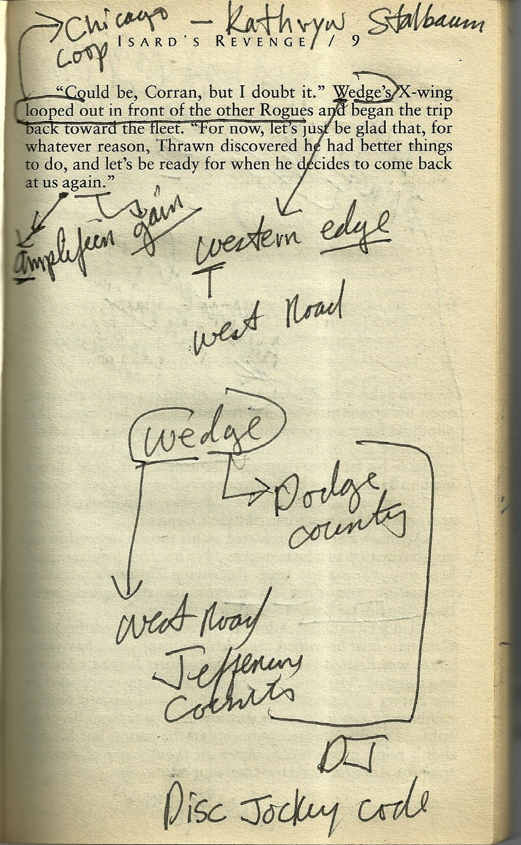 Chicago — Kathryn Stalbaum
Loop
ISARD'S REVENGE / 9
"Could be, Corran, but I doubt it." Wedge's X-wing
looped out in front of the other Rogues and began the trip
back toward the fleet. "For now, let's just be glad that, for
whatever reason, Thrawn discovered he had better things
to do, and let's be ready for when he decides to come back
at us again."
gain
western edge
West Road
Wedge
Dodge
county
West Road
Jefferson
County
DJ
Disc Jockey code